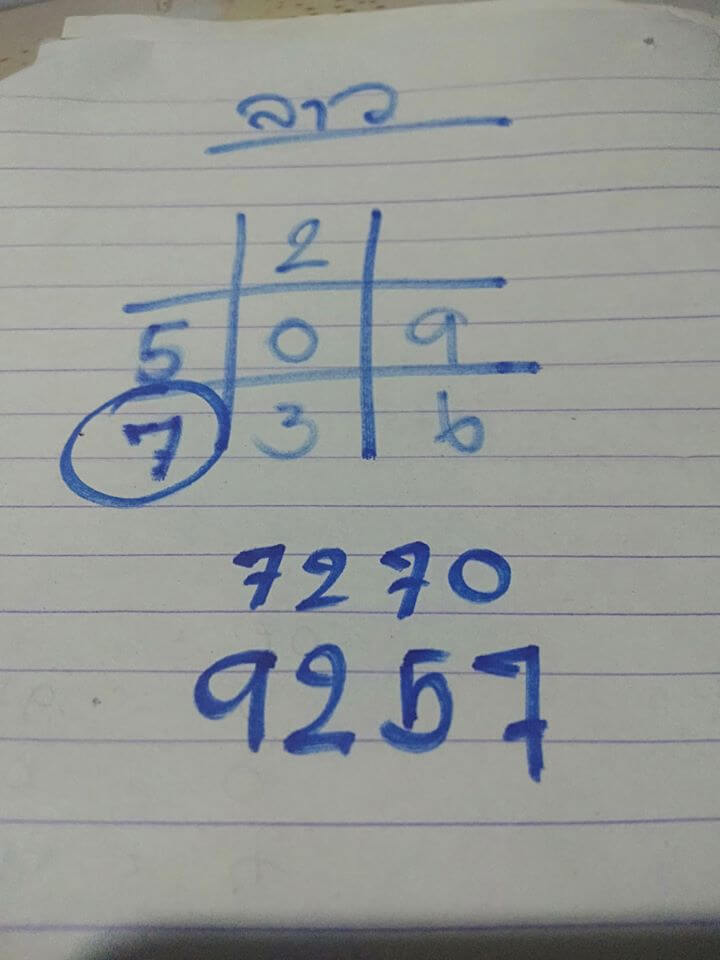 ลาว
2
5 0 9
7 3 6
7270
9257